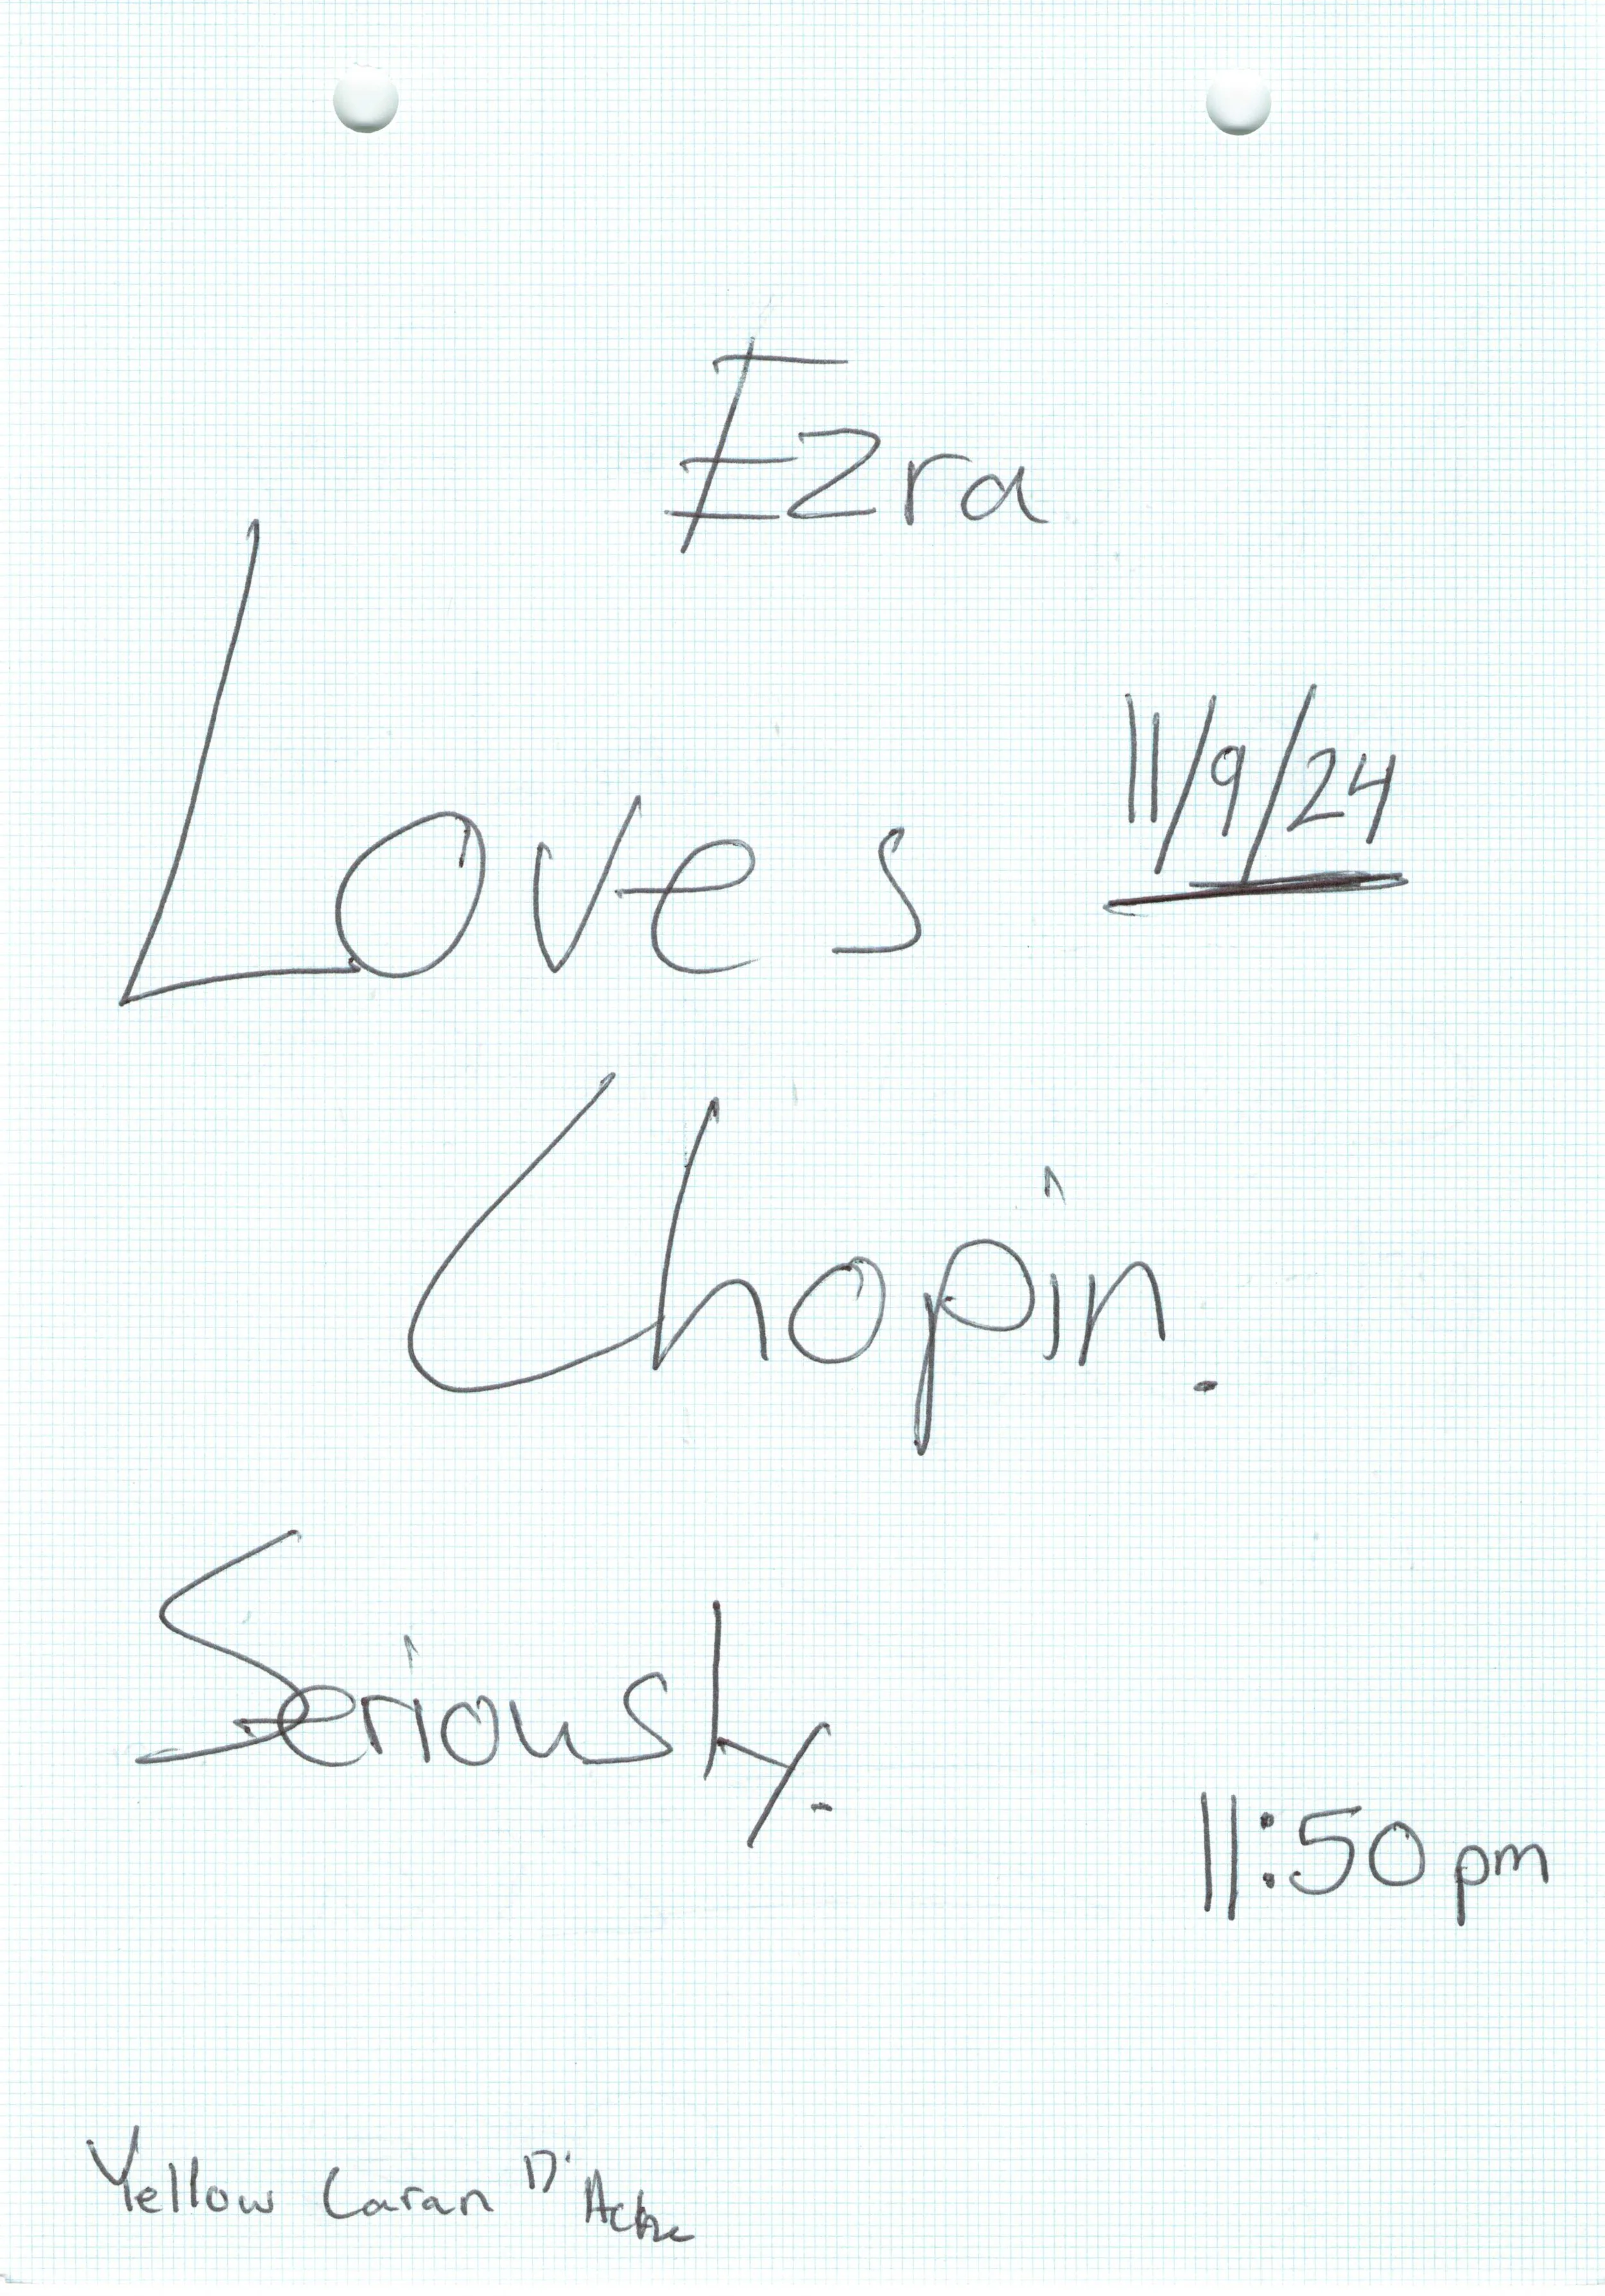 Ezra
Loves
11/9/24
Chopin.
Seriously.
11:50pm
Yellow Caran D'Ache